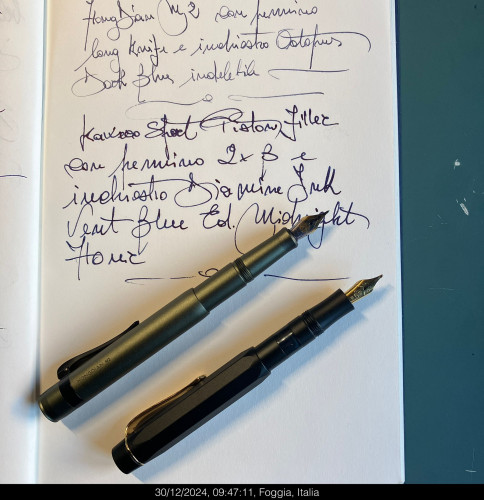 HongDian M2 con pennino
long Knife e inchiostro Octopus
Dark Blue indelebile
Kaweco Sport Piston Filler
con pennino 2x B e
inchiostro Diamine Ink
Vent Blue Ed. Midnight
30/12/2024, 09:47:11, Foggia, Italia